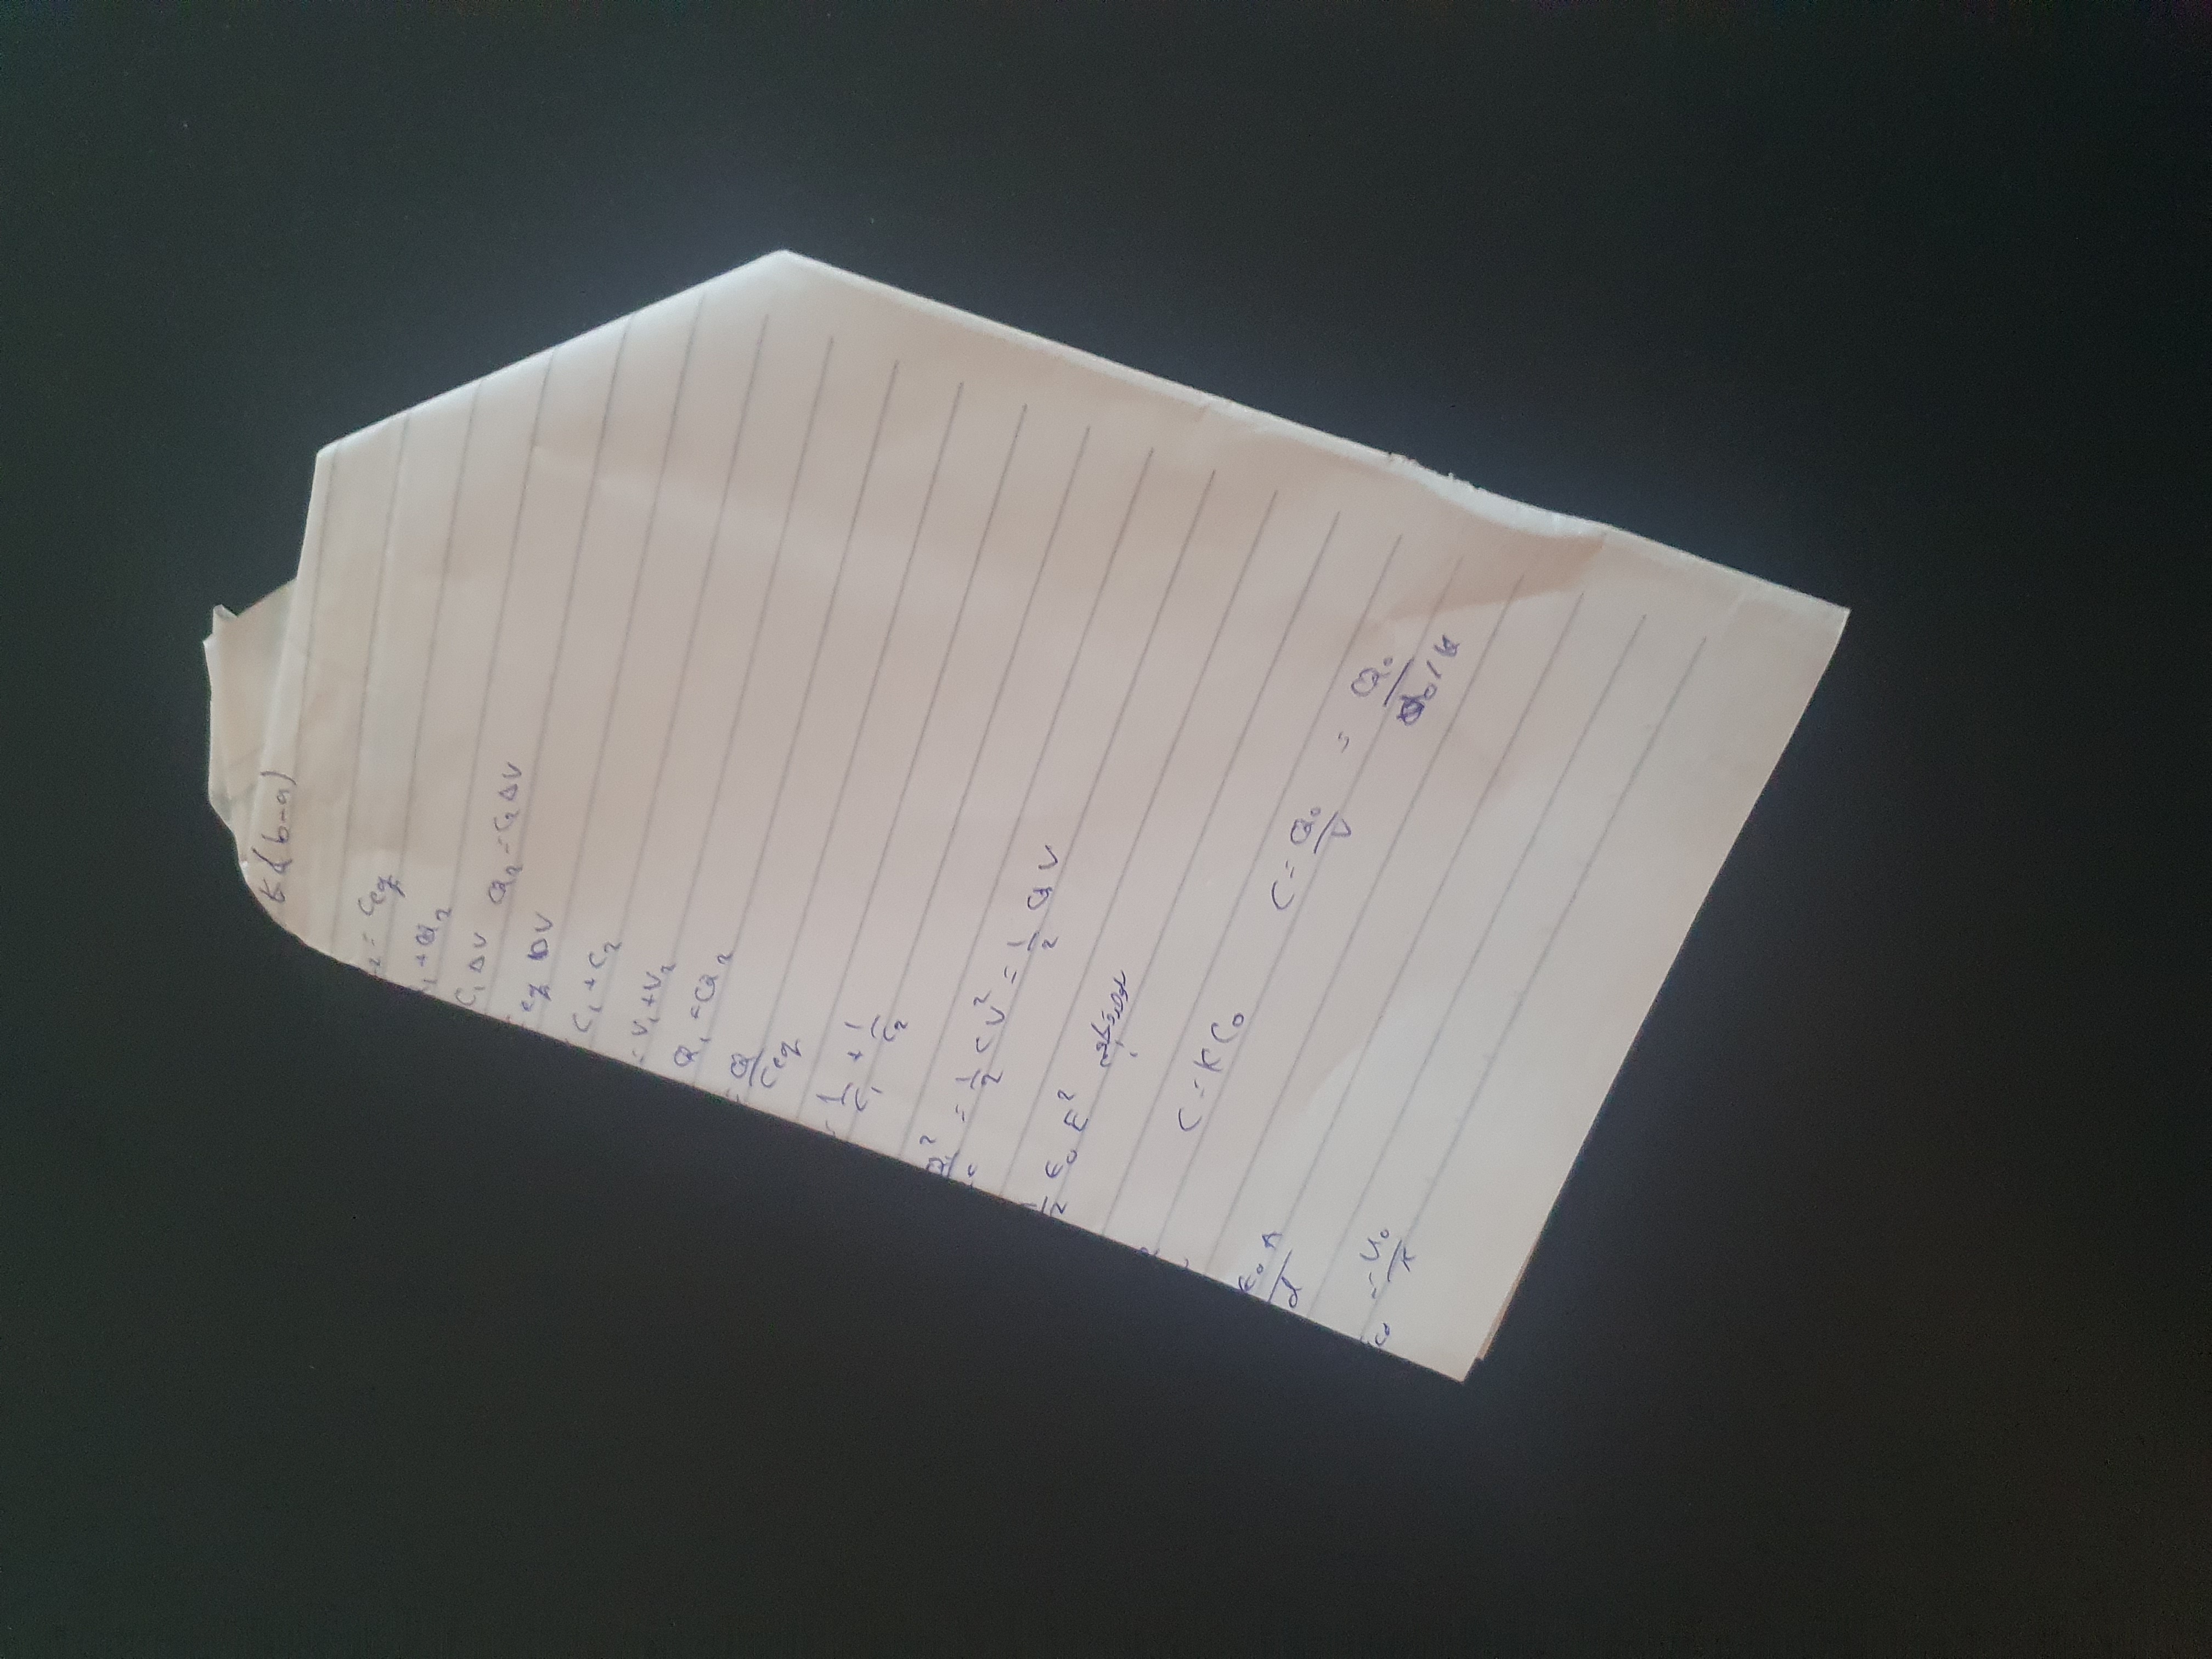 k(b-a)
2 = Ceq
1 + Q2
C1 ΔV Q2 = C2 ΔV
eq ΔV
C1 + C2
= V1 + V2
Q1 = Q2
= Q/Ceq
1/C1 + 1/C2
Q²/C = 1/2 CV² = 1/2 QV
1/2 ε0 E²
C = KC0
ε0 A/d C = Q0/V = Q0/V0/K
= V0/K